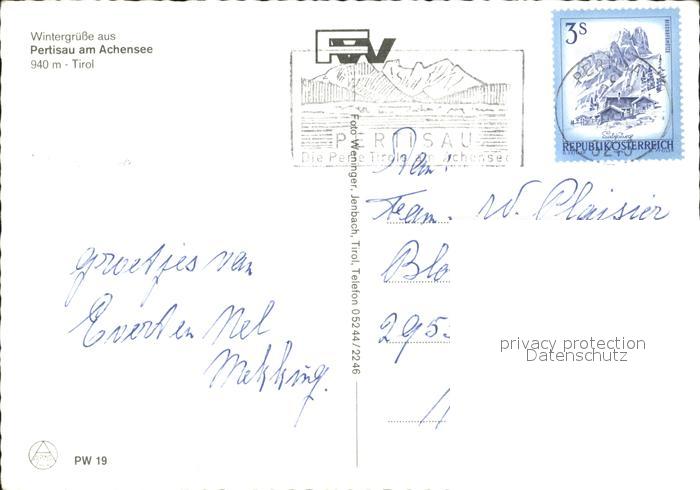 Wintergrüße aus
Pertisau am Achensee
940 m - Tirol
FW
PERTISAU
Die Perle Tirols am Achensee
3S
REPUBLIK ÖSTERREICH
Foto Weninger, Jenbach, Tirol, Telefon 05244/2246
Aan:
Fam. W. Plaisier
Blo
295
groetjes van
Evert en Nel
privacy protection
Datenschutz
PW 19